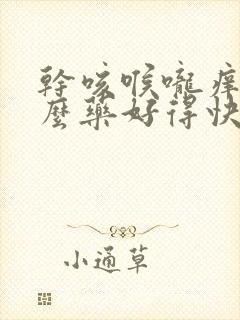 幹咳喉嚨癢
麼藥好得快
小通草